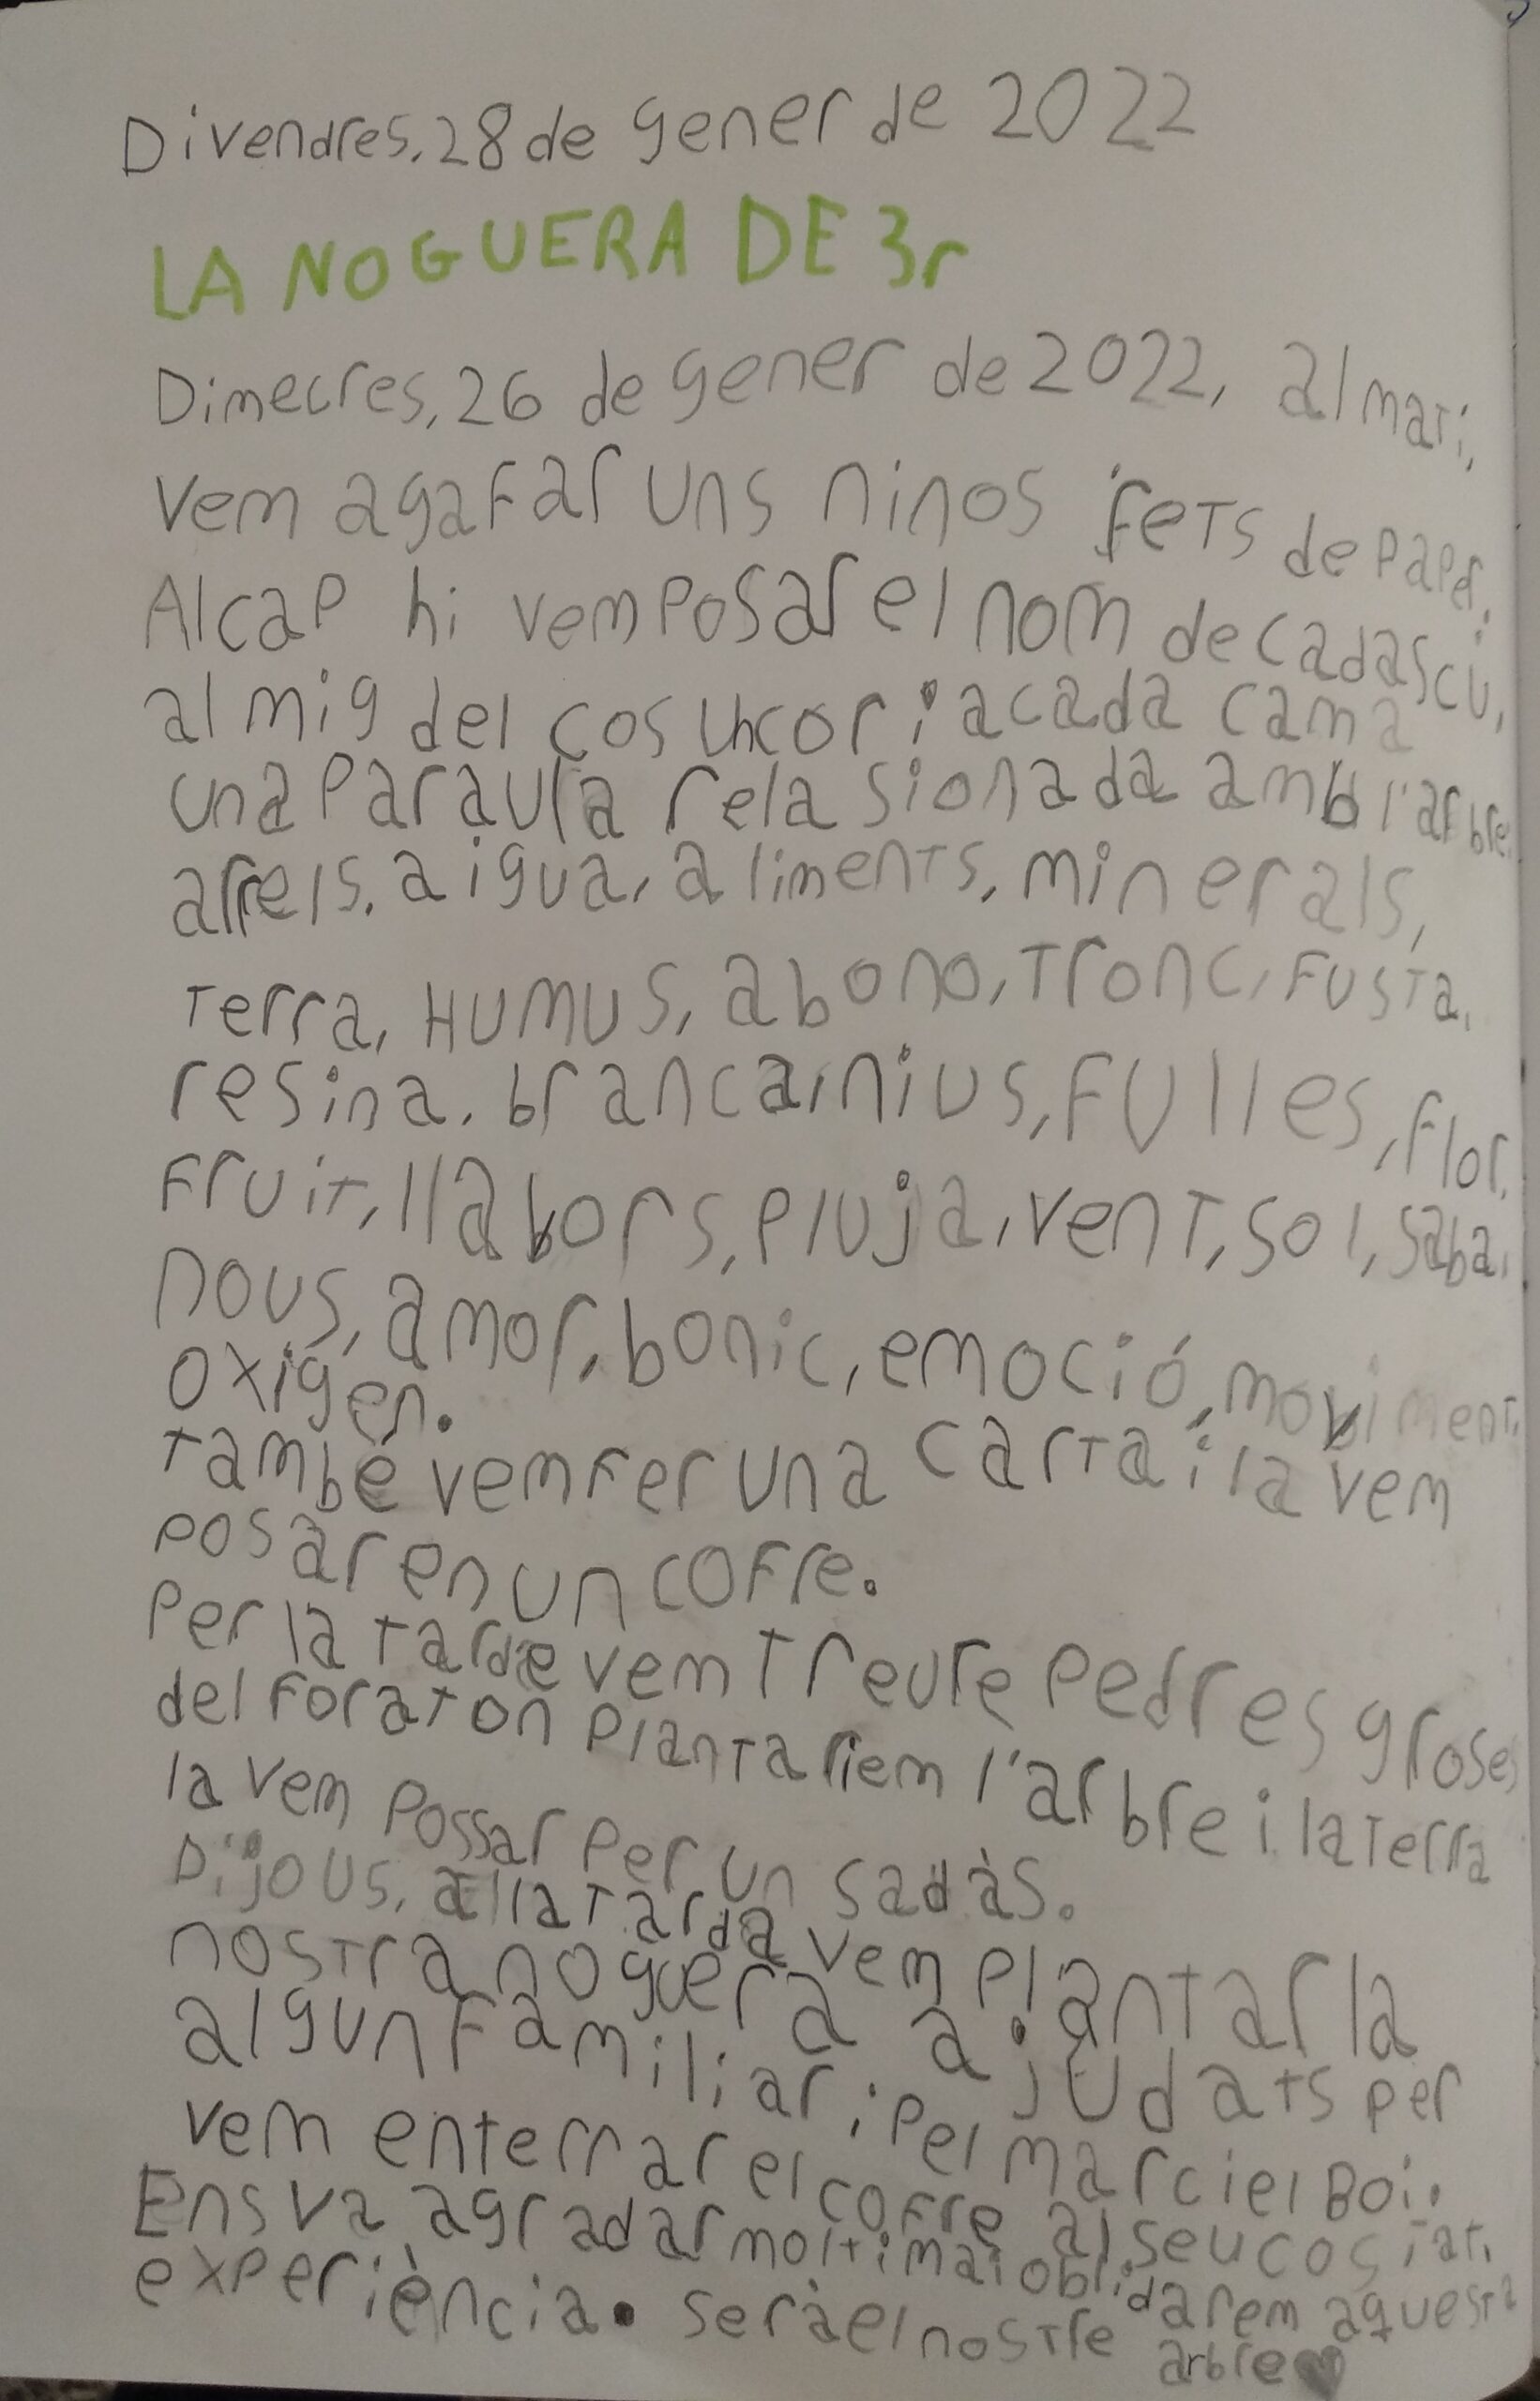 Divendres, 28 de gener de 2022
LA NOGUERA DE 3r
Dimecres, 26 de gener de 2022, al mati,
vem agafar uns ninos fets de paper.
Al cap hi vem posar el nom de cadascú,
al mig del cos un cor i a cada cama
una paraula relasionada amb l'arbre:
arrels, aigua, aliments, minerals,
terra, HUMUS, abono, tronc, fusta,
resina, branca, nius, fulles, flor,
fruit, llabors, pluja, vent, sol, saba,
nous, amor, bonic, emoció, moviment,
oxigen.
també vem fer una carta i la vem
posar en un cofre.
Per la tarde vem treure pedres groses
del forat on plantariem l'arbre i la terra
la vem possar per un sadàs.
Dijous, a lla tarda vem plantar la
nostra noguera ajudats per
algun familiar i pel marc i el Boi.
vem enterrar el cofre al seu costat.
Ens va agradar molt i mai oblidarem aquesta
experiència. serà el nostre arbre